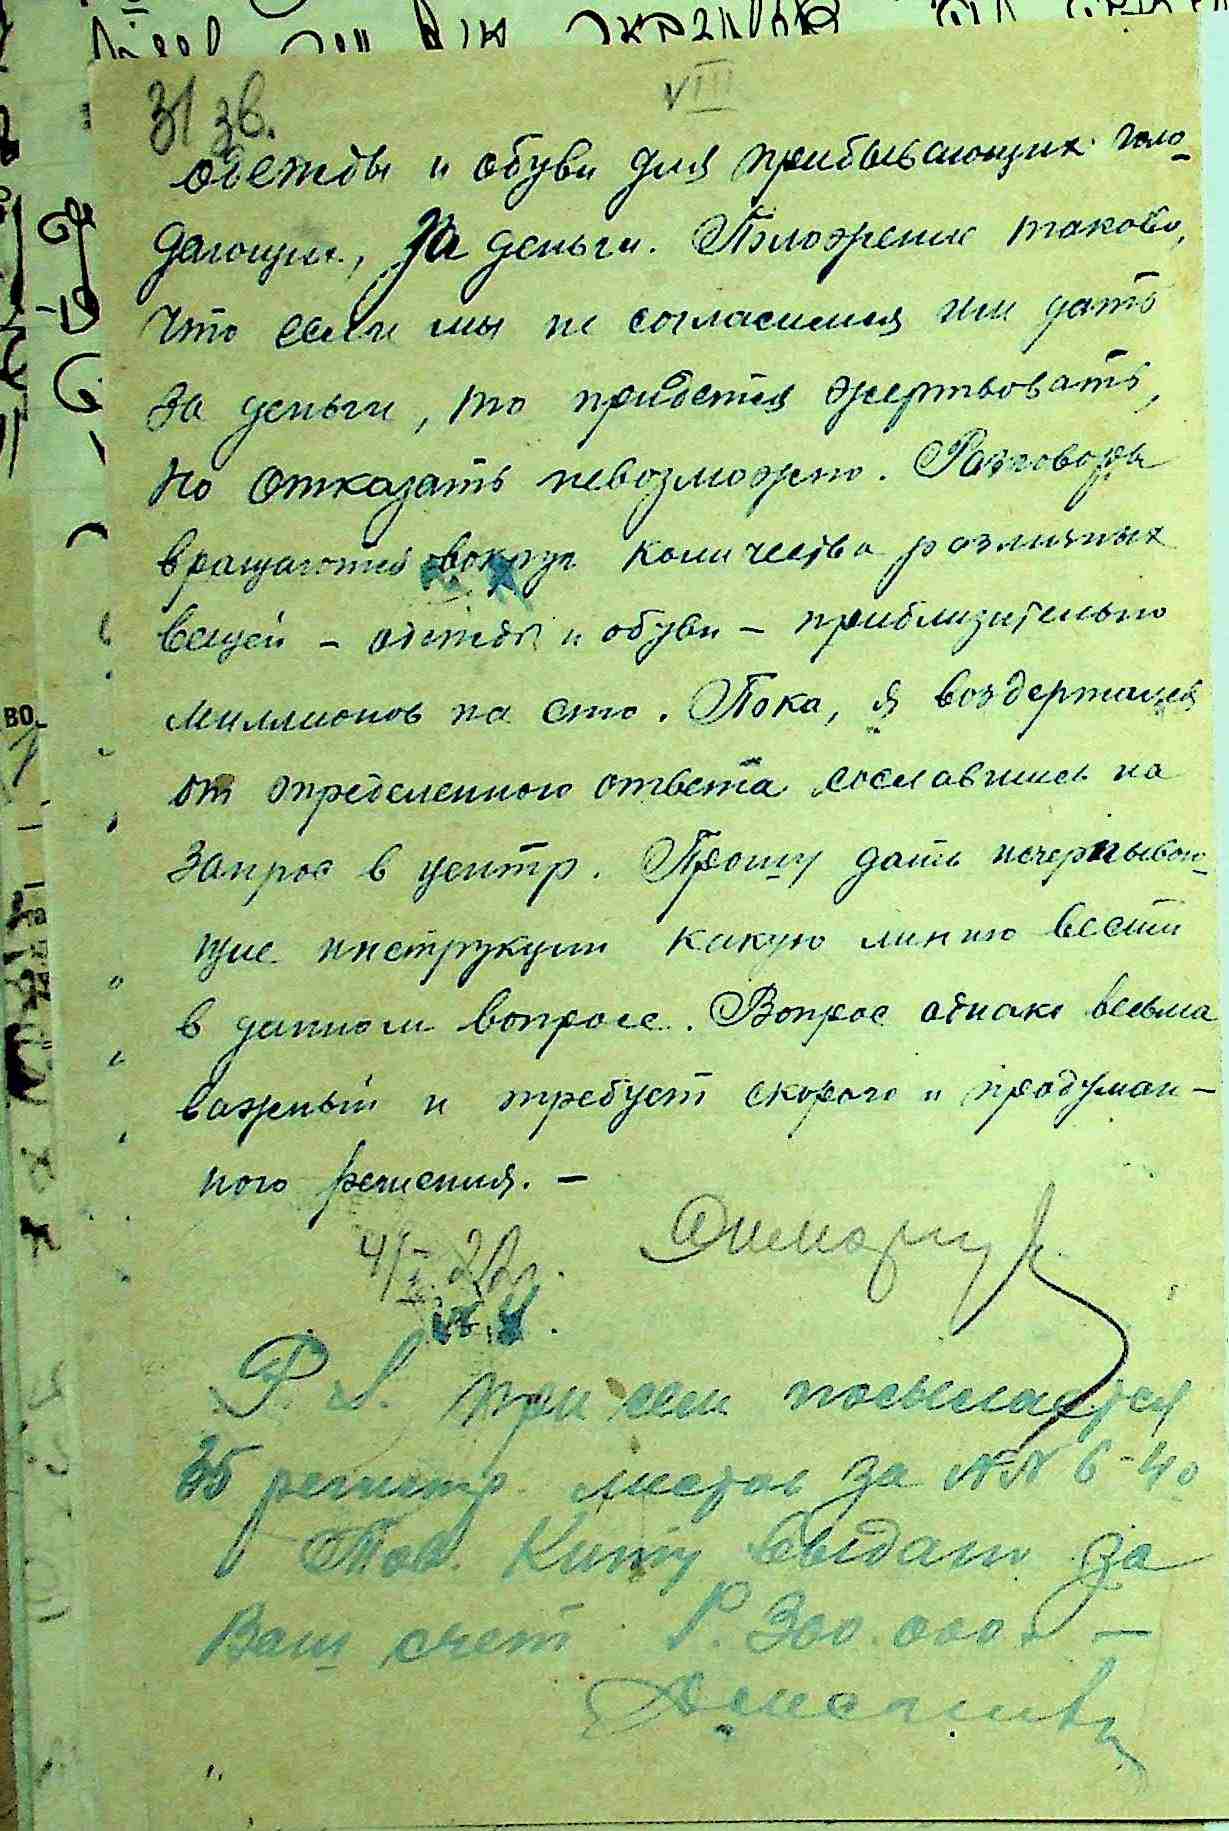 VIII
31 зв.
одежды и обуви для прибывающих голо-
дающих, за деньги. Положение таково,
что если мы не согласимся им дать
за деньги, то придется жертвовать,
но отказать невозможно. Разговоры
вращаются вокруг количества различных
вещей – одежды и обуви – приблизительно
миллионов на сто. Пока, я воздержался
от определенного ответа сославшись на
запрос в центр. Прошу дать исчерпываю-
щие инструкции какую линию вести
в данном вопросе. Вопрос однако весьма
важный и требует скорого и продуман-
ного решения. –
4/I 22 г.
P. S. При сем посылается
35 регистр. листов за №№ 6-40
Тов. Киту выдано за
Ваш счет Р. 300.000. –